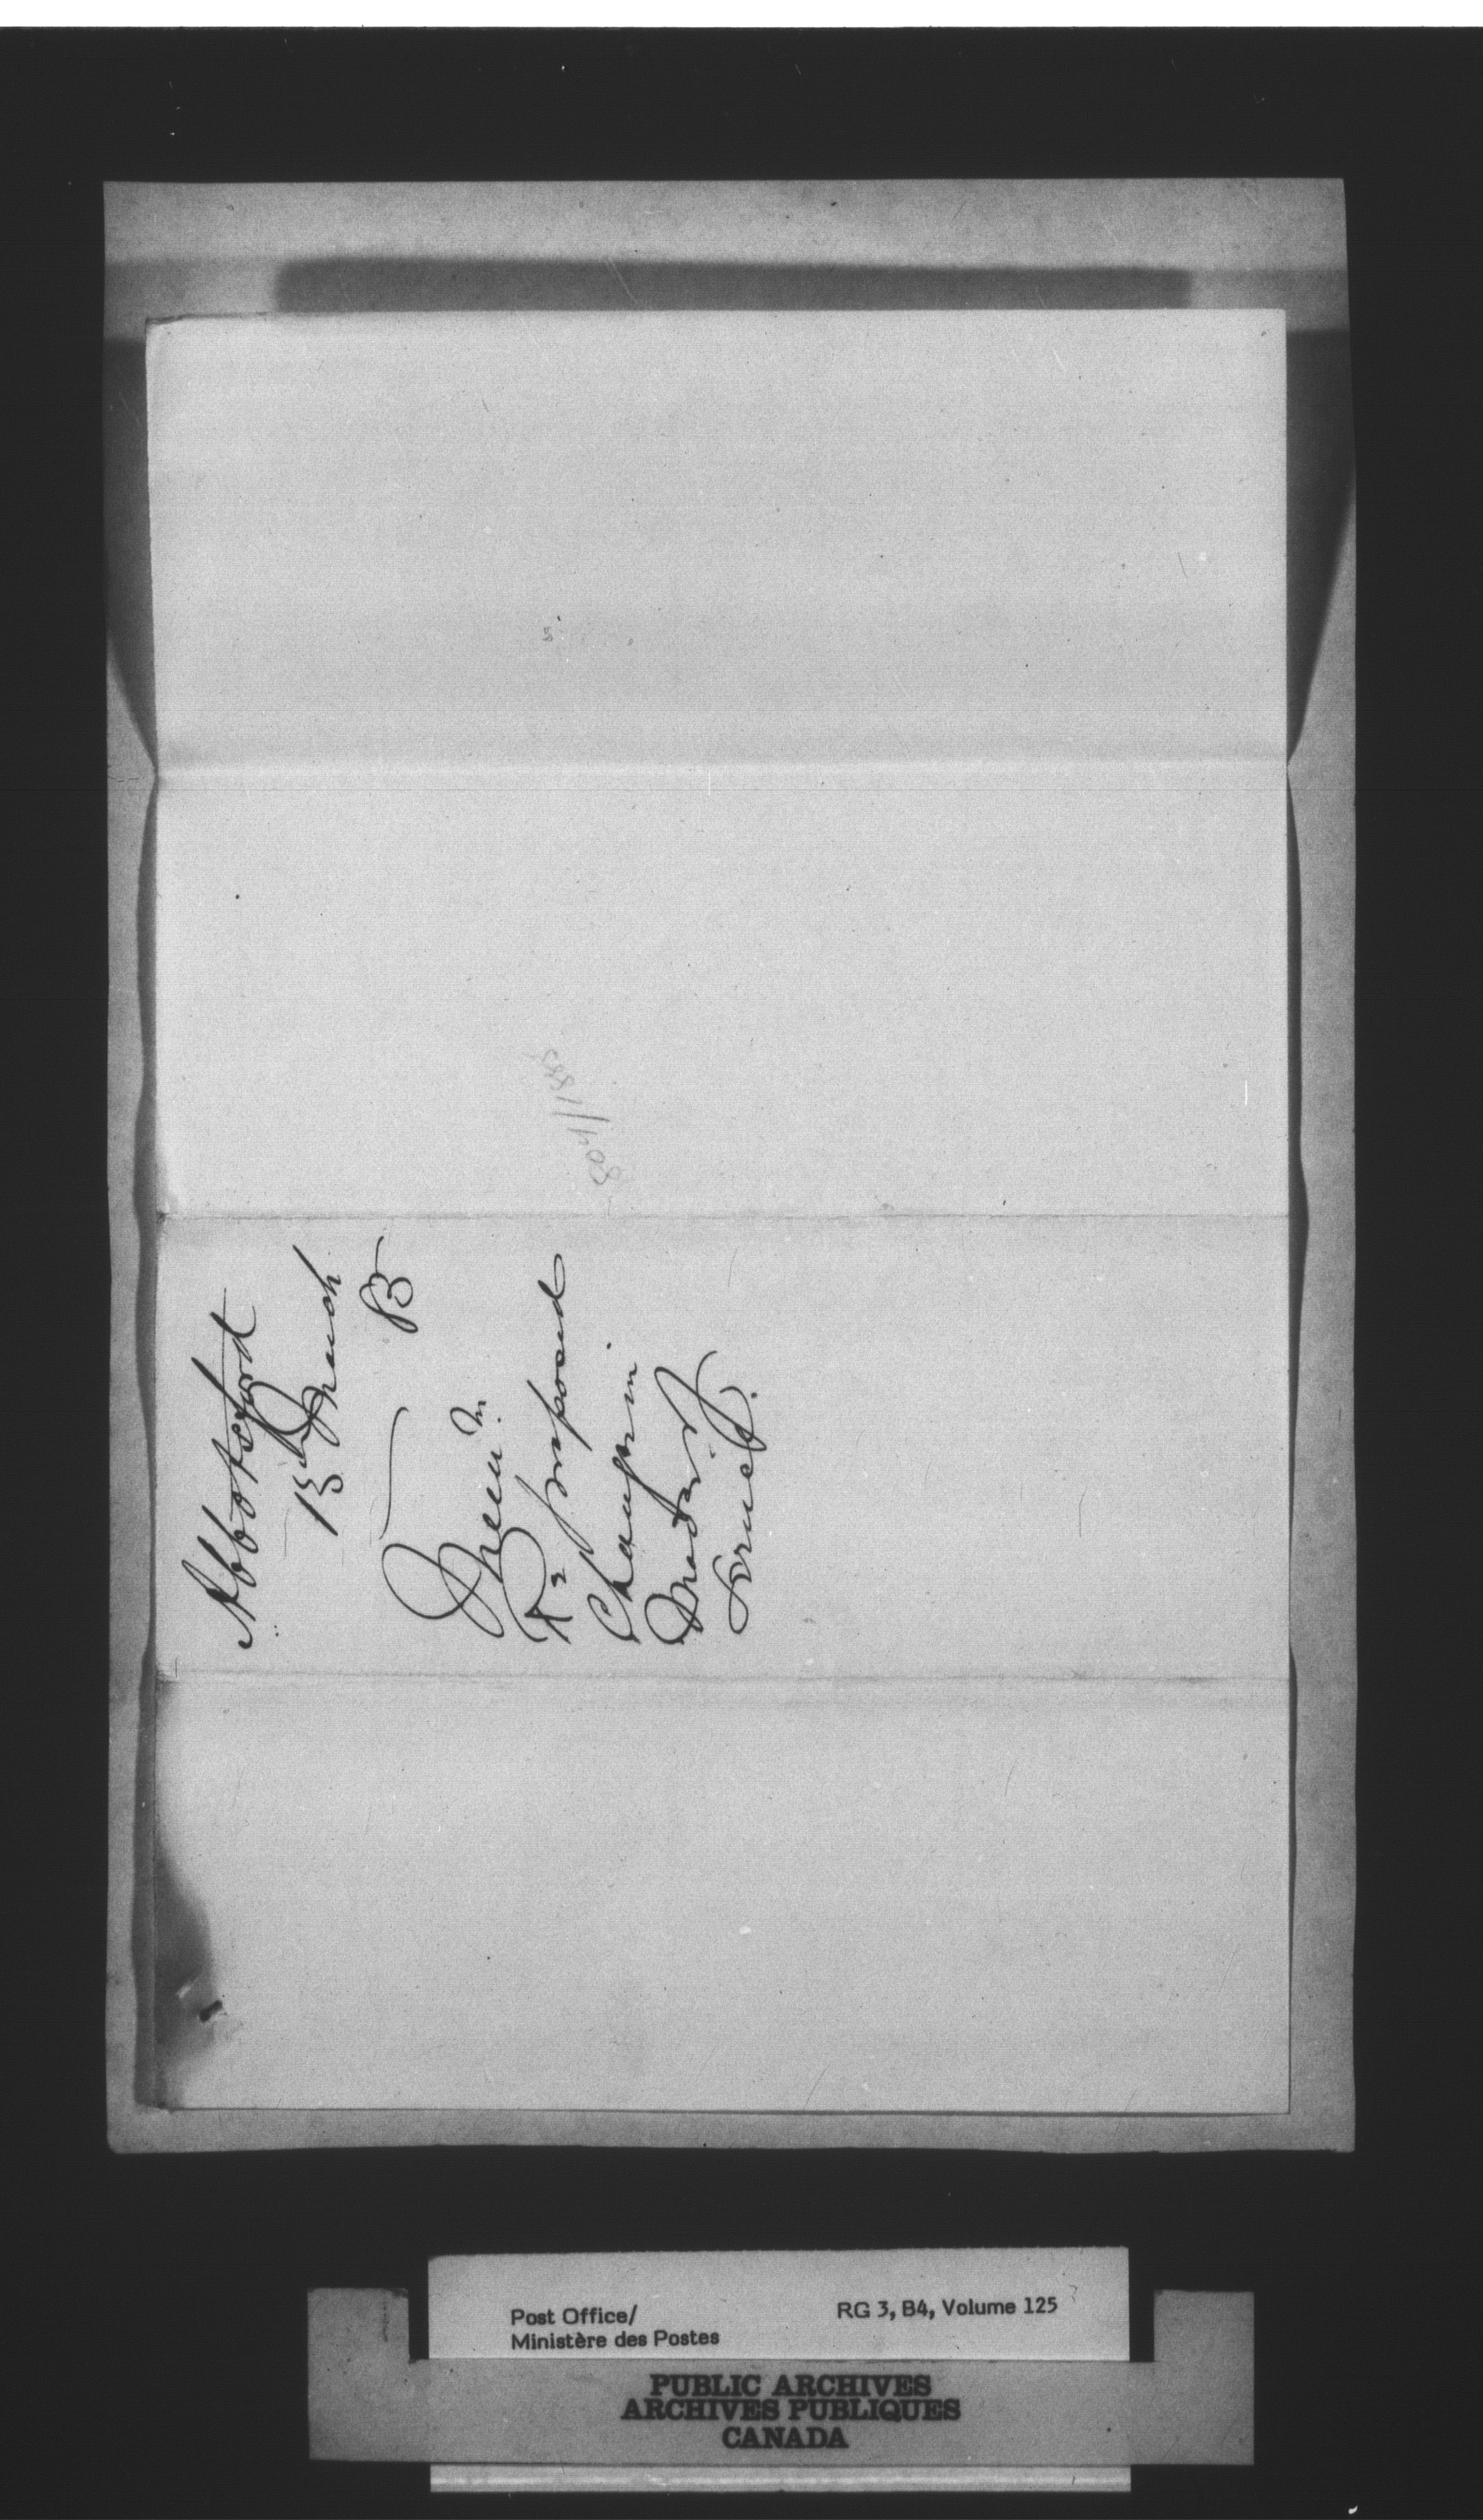 Abbotsford
13th March
83
Mem.m
Re proposed
Change in
Mail
Service.
804/1883
Post Office/
Ministère des Postes
RG 3, B4, Volume 125
PUBLIC ARCHIVES
ARCHIVES PUBLIQUES
CANADA